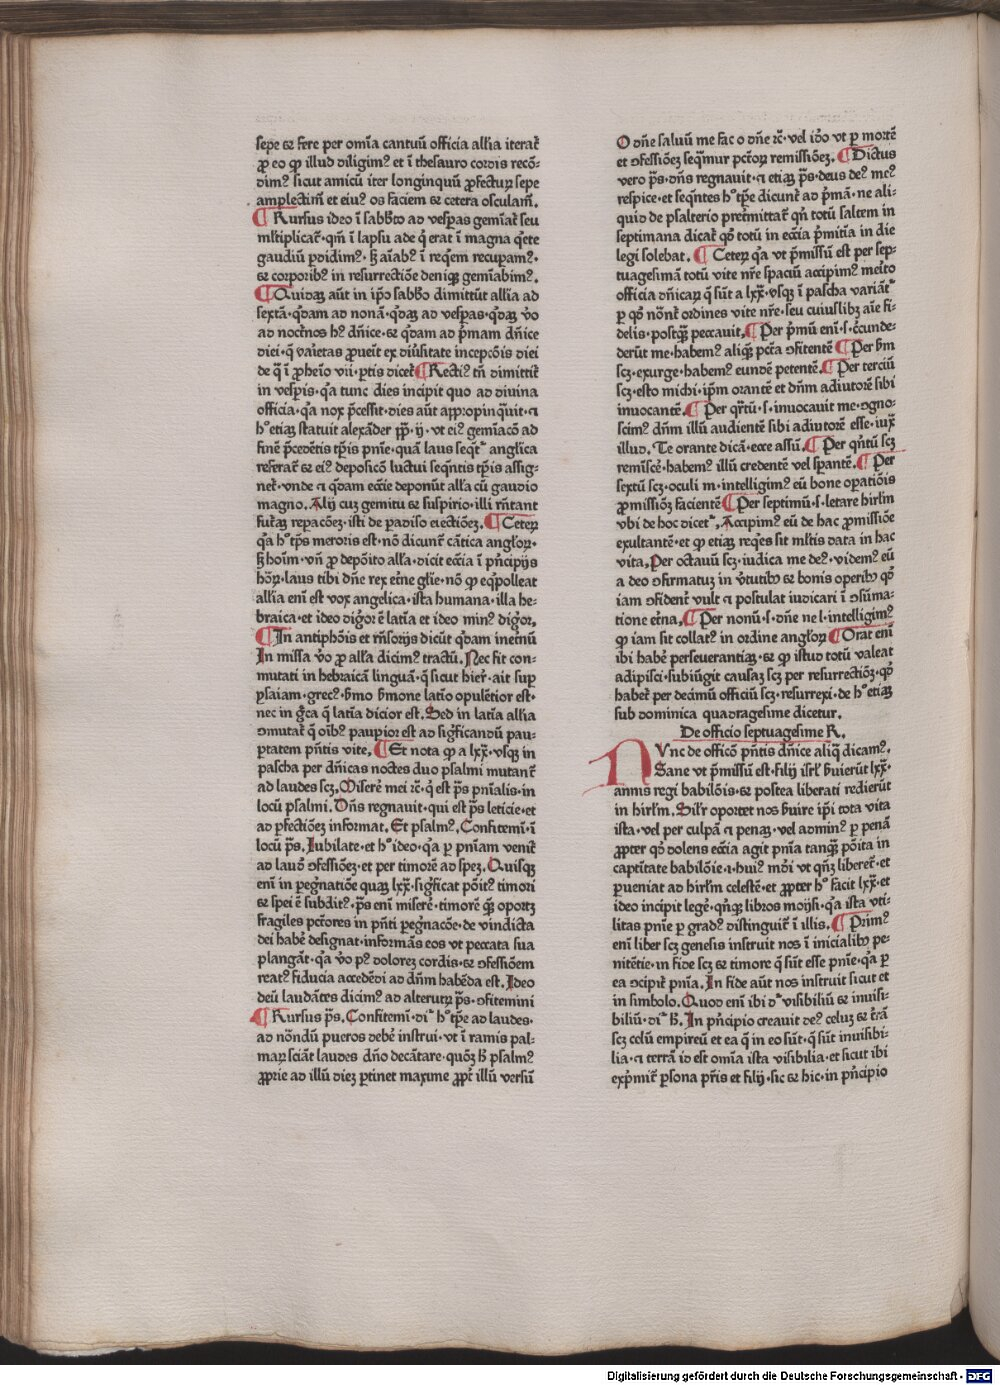 sepe et fere per om̄ia cantuū officia all̄ia iterat̄
ꝓ eo ꝙ illud diligim⁹ et ī thesauro cordis recō-
dim⁹ sicut amicū iter longinquū ꝓfecturꝭ sepe
amplectim̄ et eiu⁹ os faciem et cetera osculam̄.
¶ Rursus ideo ī sabb̄to ad vesp̄as gemīat̄ seu
ml̄tiplicat̄· qm̄ ī lapsu ade q̄ erat ī magna q̄ete
gaudiū ꝑdidim⁹· ꝫ aīab⁹ ī req̄em recupam⁹·
et corporib⁹ in resurrectiōe deniqꝫ gemīabim⁹.
¶ Quidaꝫ aūt in ip̄o sabb̄o dimittūt all̄ia ad
sextā· q̄dam ad nonā· q̄daꝫ ad vesp̄as· q̄daꝫ v̄o
ad noctn̄os h⁹ dn̄ice· et q̄dam ad p̄mam dn̄ice
diei· q̄ vaꝛietas ꝓueīt ex diūsitate incepcōis diei
de q̄ ī ꝓheīo vii· ꝑtis dicet̄ ¶ Recti⁹ tn̄ dimittit̄
in vesp̄is· q̄a tunc dies incipit quo ad diuina
officia· q̄a nox p̄cessit· dies aūt appropinq̄uit· ⁊
h° etiaꝫ statuit alexāder pp̄· ij· vt ei⁹ gemīacō ad
finē p̄cedētis tp̄is pn̄ie· quā laus seq̄t̄ anglīca
referat̄ et ei⁹ deposicō luctui seq̄ntis tp̄is assig-
net̄· vnde ⁊ q̄dam ecc̄ie deponūt all̄a cū gaudio
magno. Alij cuꝫ gemitu et suspirio· illi rn̄tant
fut̄aꝫ repacōeꝫ· isti de ꝑadiso eiectiōeꝫ. ¶ Ceteꝝ
q̄a h° tp̄s meroris est· nō dicunt̄ cātica angl̄oꝝ·
ꝫ hoīm· vn̄ ꝓ depoīto all̄a· dicit ecc̄ia ī p̄ncipijs
hōꝝ· laus tibi dn̄e rex et̄ne gl̄ie· nō ꝙ eq̄polleat
all̄ia enī est vox angelica· ista humana· illa he-
braica· et ideo dig̔or ē latīa et ideo min⁹ dig̔or.
¶ In antiphōis et rn̄sorijs dicūt q̄dam inet̄nū
In missa v̄o ꝓ all̄a dicim⁹ tractū. Nec sit con-
mutati in hebraicā linguā· q̄ sicut hier̄· ait suꝑ
ysaiam· grec⁹· ẜmo ẜmone latīo opulētior est·
nec in gr̄ca q̄ latīa dicior est. Sed in latīa all̄ia
ꝯmutat̄ q̄ oīb⁹ paupior est ad sig̔ficandū pau-
ꝑtatem pn̄tis vite. ¶ Et nota ꝙ a lxx̄· vsqꝫ in
pascha per dn̄icas noctes duo psalmi mutant̄
ad laudes scꝫ. Miserē mei ꝛc̄· q̄ est p̄s pn̄ialis· in
locū psalmi. Dn̄s regnauit· qui est p̄s leticie· et
ad ꝑfectiōeꝫ informat. Et psalm⁹. Confitemī· ī
locū p̄s. Iubilate· et h° ideo· q̄a ꝑ pn̄iam venit̄
ad laud̄ ꝯfessiōeꝫ· et per timorē ad speꝫ. Quisqꝫ
enī in peg̔natiōe quaꝫ lxx̄· sig̔ficat poīt⁹ timori
et spei ē subdit⁹. p̄s enī miserē· timorē q̄ꝫ oportꝫ
fragiles pctōres in pn̄ti peg̔nacōe· de vindicta
dei habē designat· informās eos vt peccata sua
plangāt· q̄a v̄o p⁹ doloreꝫ cordis· et ꝯfessiōem
reat⁹ fiducia accedēdi ad dn̄m habēda est. Ideo
deū laudātes dicim⁹ ad alterutꝝ p̄s. ꝯfitemini
¶ Rursus p̄s. Confitemī· di̔ h° tp̄e ad laudes·
ad nōndū pueros debē instrui· vt ī ramis pal-
maꝝ sciāt laudes dn̄o decātare· quōꝫ ẜ psalm⁹
ꝓprie ad illū dieꝫ ꝑtinet maxime ꝓpt̄ illū versū
O dn̄e saluū me fac o dn̄e ꝛc̄· vel id̄o vt ꝑ mortē
et ꝯfessiōeꝫ seq̄mur pctōꝝ remissiōeꝫ. ¶ Dictus
vero p̄s· dn̄s regnauit· ⁊ etiaꝫ p̄s· deus de⁹ me⁹
respice· et seq̄ntes h° tp̄e dicunt̄ ad p̄mā· ne ali-
quid de psalterio pret̄mittat̄ qn̄ totū saltem in
septimana dicat̄ qd̄ totū in ecc̄ia p̄mitīa in die
legi solebat. ¶ Ceteꝝ q̄a vt p̄missū est per sep-
tuagesimā totū vite nr̄e spaciū accipim⁹ meīto
officia dn̄icaꝝ q̄ sūt a lxx̄· vsqꝫ ī pascha variāt̄
ꝑ qd̄ nōnt̄ ordines vite nr̄e· seu cuiuslibꝫ aīe fi-
delis· postq̄ꝫ peccauit. ¶ Per p̄mū enī· s· c̄cunde-
derūt me· habem⁹ aliqꝫ pct̄a ꝯfitentē ¶ Per ẜm
scꝫ· exurge· habem⁹ eundē petentē. ¶ Per terciū
scꝫ· esto michi· ip̄m orantē et dn̄m adiutorē sibi
inuocantē. ¶ Per qr̄tū· s· inuocauit me· ꝯgno-
scim⁹ dn̄m illū audientē sibi adiutorē esse· iux̄
illud. Te orante dicā· ecce assū. ¶ Per qn̄tū scꝫ
remīscē· habem⁹ illū credentē vel sꝑantē. ¶ Per
sextū scꝫ· oculi m̄· intelligim⁹ eū bone opatiōis
ꝓmissiōꝫ facientē ¶ Per septimū· s· letare hirl̄m
vbi de hoc dicet̄. Accipim⁹ eū de hac ꝓmissiōe
exultantē· et ꝙ etiaꝫ req̄es sit ml̄tis data in hac
vita. Per octauū scꝫ· iudica me de⁹· videm⁹ eū
a deo ꝯfirmatuꝫ in v̄tutibꝫ et bonis operibꝫ qd̄
iam ꝯfident̄ vult ⁊ postulat iudicari ī ꝯsūma-
tione et̄na. ¶ Per nonū· s· dn̄e ne l· intelligim⁹
ꝙ iam sit collat⁹ in ordine angl̄oꝝ ¶ Orat enī
ibi habē perseuerantiaꝫ· et ꝙ istud totū valeat
adipisci· subiūgit causaꝫ scꝫ per resurrectiōꝫ· qd̄
habet̄ per decimū officiū scꝫ· resurrexi· de h° etiaꝫ
sub dominica quadragesime dicetur.
De officio septuagesime R.
NVnc de officō pn̄tis dn̄ice aliq̄ dicam⁹.
Sane vt p̄missū est· filij isrl̄ ẜuierūt lxx̄·
annis regi babilōis· et postea liberati redierūt
in hirl̄m. Sil̄r oportet nos ẜuire ip̄i tota vita
ista· vel per culpā ⁊ penaꝫ· vel admin⁹ ꝑ penā
ꝓpter qd̄ dolens ecc̄ia agit pn̄ia tanqꝫ pōita in
captitate babilōie· ⁊ hui⁹ mōi vt qn̄ꝫ liberet̄· et
ꝑueniat ad hirl̄m celestē· et ꝓpter h° facit lxx̄· et
ideo incipit legē· qn̄qꝫ libros moysi· q̄a ista vti-
litas pn̄ie ꝑ grad⁹ distinguit̄ ī illis. ¶ Prim⁹
enī liber scꝫ genesis instruit nos ī inicialibꝫ pe-
nitētie· in fide scꝫ et timore q̄ sūt esse pn̄ie· q̄a ꝑ
ea ꝯcipit̄ pn̄ia. In fide aūt nos instruit sicut et
in simbolo. Quod enī ibi d̔ visibiliū et inuisi-
biliū· di̔ ẜ. In p̄ncipio creauit de⁹ celuꝫ et t̄rā
scꝫ celū empireū et ea q̄ in eo sūt· q̄ sūt inuisibi-
lia· ⁊ terrā id est om̄ia ista visibilia· et sicut ibi
exp̄mit̄ ꝑsona pr̄is et filij· sic et hic· in p̄ncipio
Digitalisierung gefördert durch die Deutsche Forschungsgemeinschaft - DFG